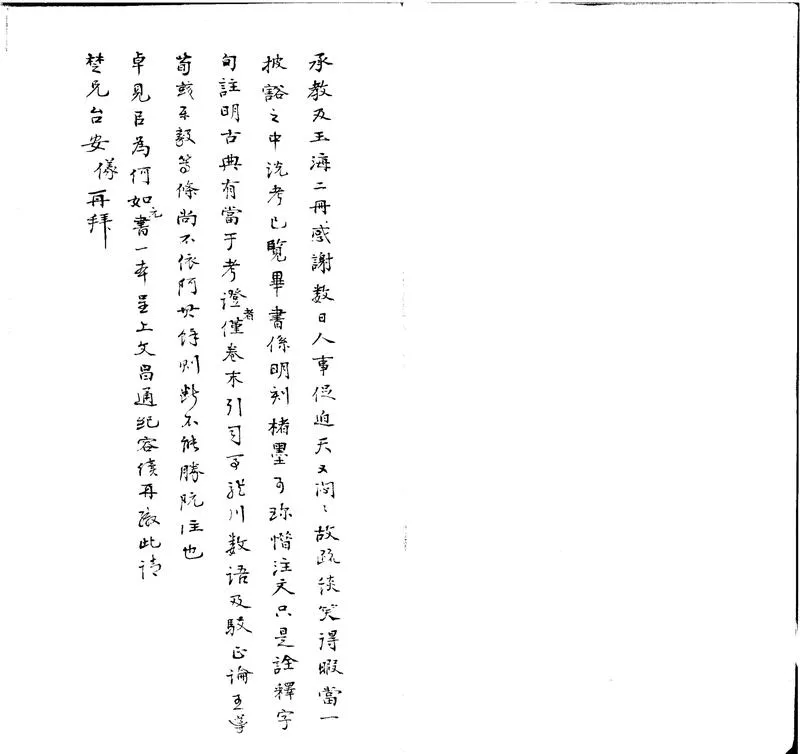 承教及玉海二冊感謝数日人事促迫天又悶悶故疏談笑得暇當一
披豁之中說考已覽畢書係明刻楮墨可珍惜注文只是詮釋字
句註明古典有當于考證者僅卷末引司馬溫川数語及駁正論王導
荀彧系毅等條尚不依阿世餘則斷不能勝阮注也
卓見以為何如元書一本呈上文昌通紀容續再繳此請
楚兄台安儀再拜